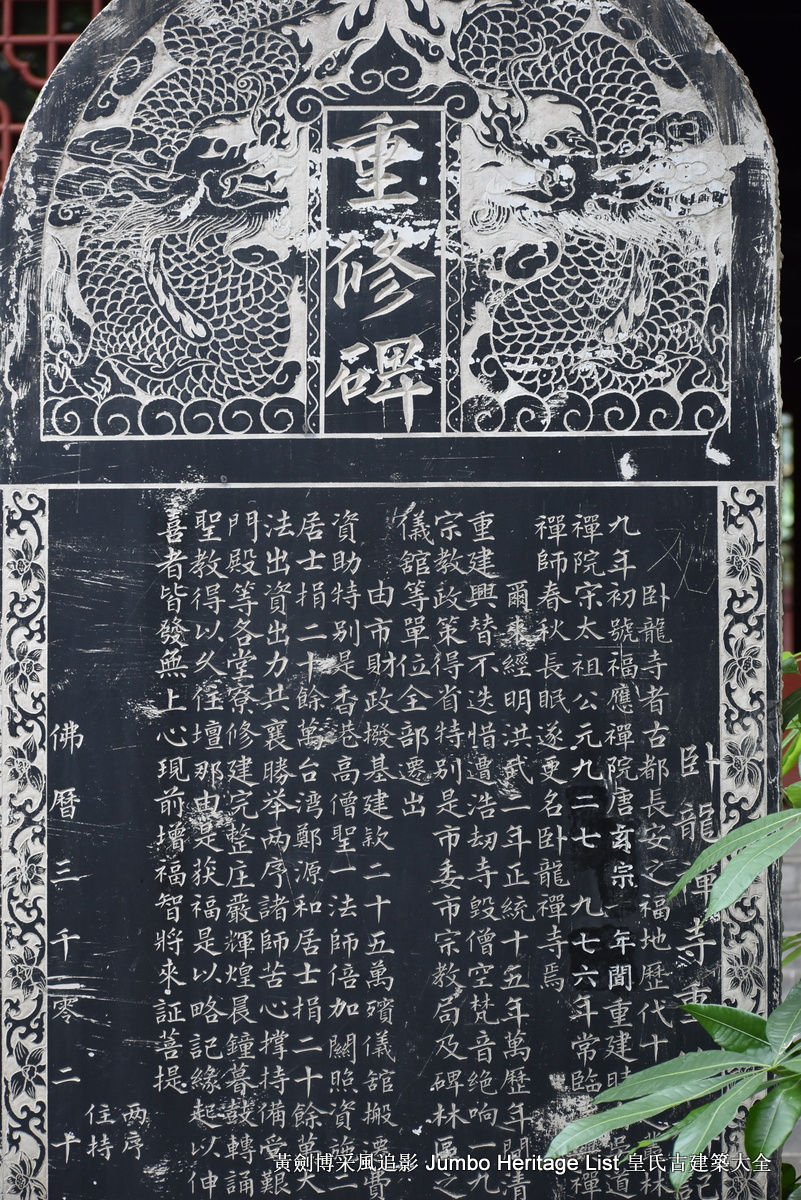 重修碑
卧龍禪寺重
卧龍寺者古都長安之福地歷代十
九年初號福應禪院唐玄宗 年間重建
禪院宋太祖公元九二七 九七六年常臨
禪師春秋長眠遂更名卧龍禪寺焉
爾來經明洪武二年正統十五年萬歷年間清
重建興替不迭惜遭浩劫寺毀僧空梵音绝响一九
宗教政策得省特别是市委市宗教局及碑林區之
儀舘等單位全部遷出
由市財政撥基建款二十五萬殯儀舘搬遷費
資助特别是香港高僧聖一法師倍加關照資施二
居士捐二十餘萬台湾鄭源和居士捐二十餘萬
法出資出力共襄勝举两序諸師苦心撑持備受艱
門殿等各堂寮修建完整庄嚴輝煌晨鐘暮鼓轉誦
聖教得以久住壇那由是获福是以略記緣起以伸
喜者皆發無上心現前增福智將來証菩提
两序
住持
佛曆三千零二十
黃劍博采風追影 Jumbo Heritage List 皇氏古建築大全